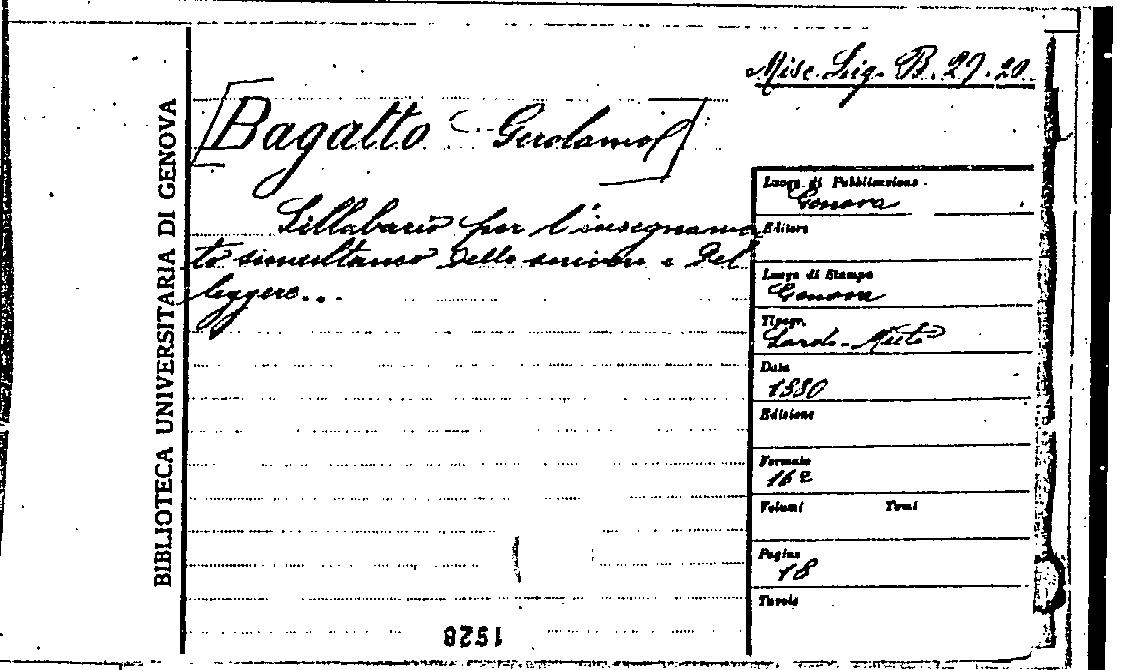 Misc. Lig. B. 27. 20
[Bagatto Gerolamo]
Sillabario per l'insegnamen
to simultaneo dello scrivere e del
leggere...
Luogo di Pubblicazione
Genova
Editore
Luogo di Stampa
Genova
Tipogr.
Sord-Muti
Data
1880
Edizione
Formato
16°
Volumi Tomi
Pagine
18
Tavole
BIBLIOTECA UNIVERSITARIA DI GENOVA
1528